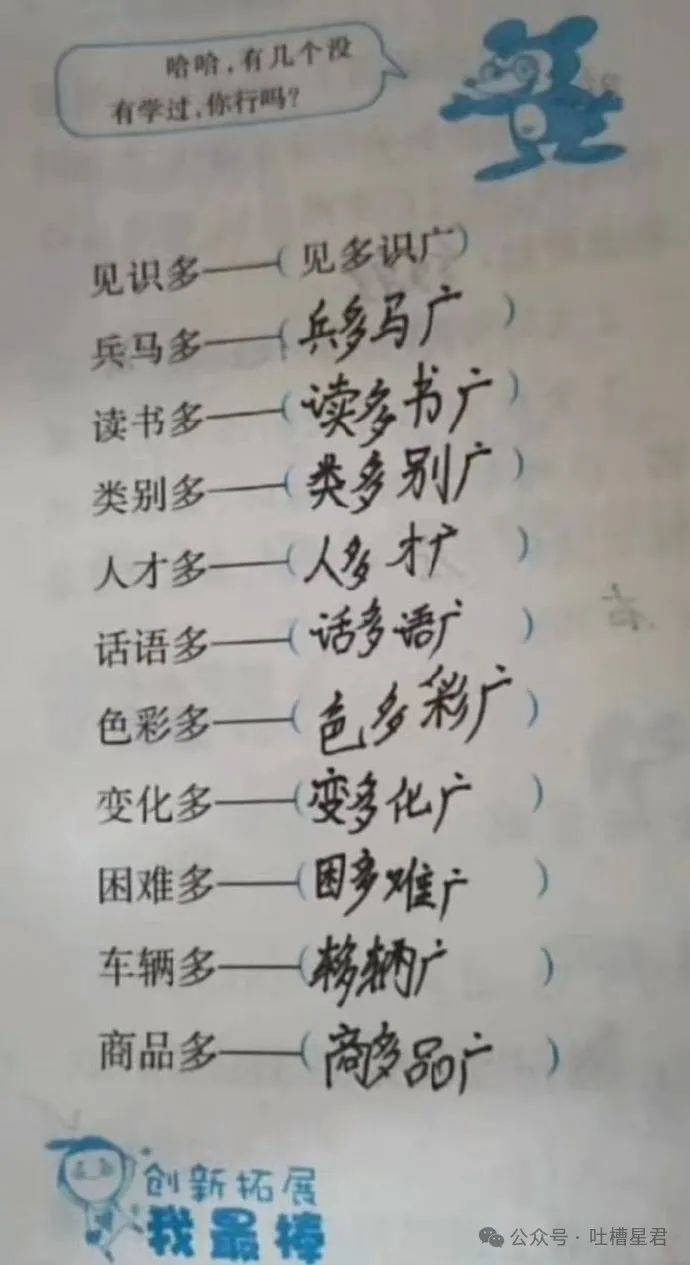 哈哈，有几个没
有学过，你行吗？
见识多——（见多识广）
兵马多——（兵多马广）
读书多——（读多书广）
类别多——（类多别广）
人才多——（人多才广）
话语多——（话多语广）
色彩多——（色多彩广）
变化多——（变多化广）
困难多——（困多难广）
车辆多——（车多辆广）
商品多——（商多品广）
创新拓展
我最棒
公众号·吐槽星君